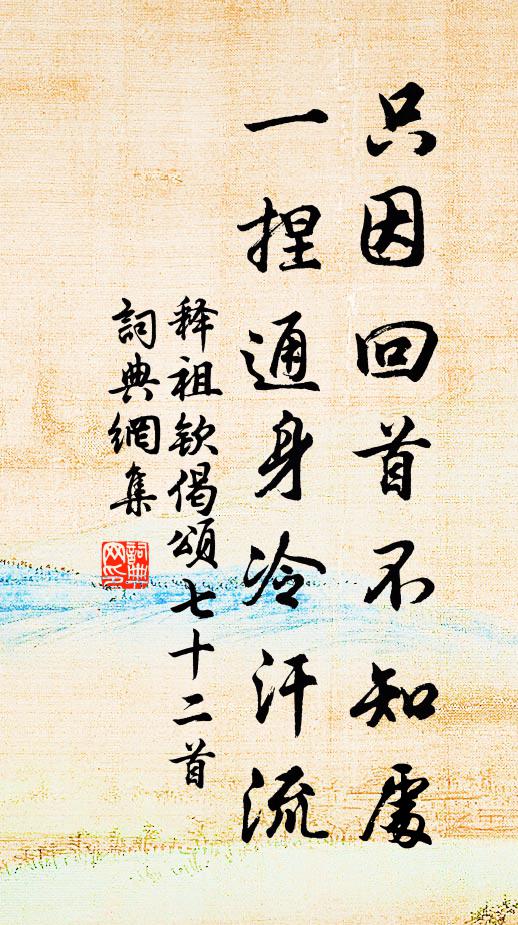 只因回首不知處
一捏通身冷汗流
释祖钦偈頌七十二首
詞典網集
詞典网印